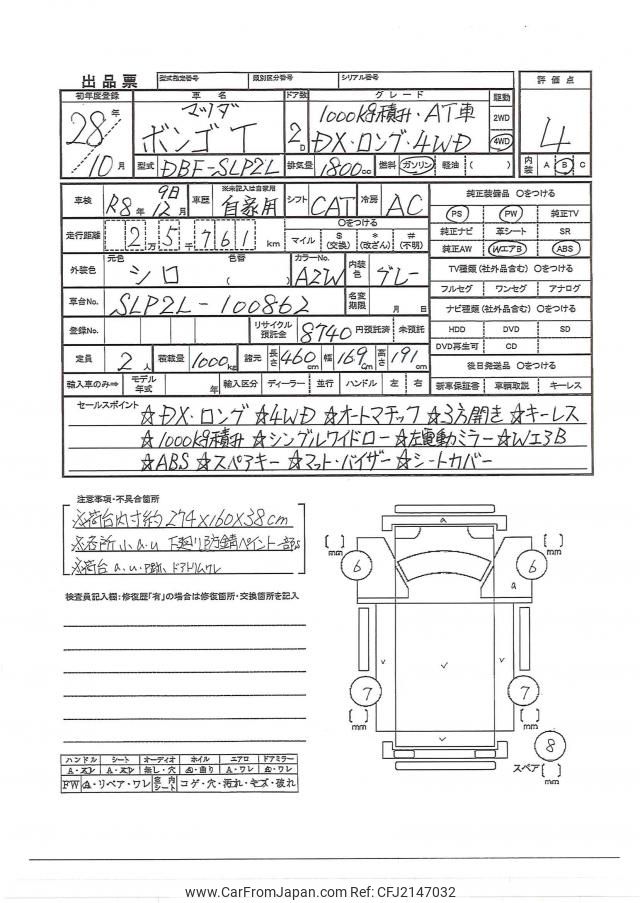 出品票 型式指定番号 類別区分番号 シリアル番号 評価点
初年度登録 車名 ドア数 グレード 駆動
28年 マツダ 1000kg積み・AT車 2WD
ボンゴT 2D DX・ロング・4WD 4WD 4
10月 型式 DBF-SLP2L 排気量 1800cc 燃料 ガソリン 軽油 ( ) 内装 A B C
車検 R8年 9日 12月 車歴 ※未記入は自家用 自家用 シフト CAT 冷房 AC 純正装備品 〇をつける
PS PW 純正TV
走行距離 2万5千761km 〇をつける
マイル $(交換) *(改ざん) #(不明) 純正ナビ 革シート SR
純正AW WエアB ABS
外装色 元色 シロ 色替 ( ) カラーNo. A2W 内装色 グレー TV種類(社外品含む) 〇をつける
フルセグ ワンセグ アナログ
車台No. SLP2L-100862 名変期限 月 日 ナビ種類(社外品含む) 〇をつける
登録No. リサイクル預託金 8740 円預託済 未預託 HDD DVD SD
DVD再生可 CD
定員 2人 積載量 1000kg 諸元 長さ460cm 幅169cm 高さ191cm 後日発送品 〇をつける
輸入車のみ⇒ モデル年式 年 輸入区分 ディーラー 並行 ハンドル 左 右 新車保証書 車輌取説 キーレス
セールスポイント
☆DX・ロング ☆4WD ☆オートマチック ☆3方開き ☆キーレス
☆1000kg積み ☆シングルワイドロー ☆左電動ミラー ☆WエアB
☆ABS ☆スペアキー ☆マット・バイザー ☆シートカバー
注意事項・不具合箇所
※荷台内寸約274×160×38cm
※各所小a.u 下廻り防錆ペイント一部s
※荷台a.u・P跡、ドアトリムワレ
検査員記入欄:修復歴「有」の場合は修復箇所・交換箇所を記入
a
[ ]mm [ ]mm
6 6
a
v v v
7 7
[ ]mm [ ]mm
v
8
スペア [ ]mm
ハンドル シート オーディオ ホイル エアロ ドアミラー
A・スレ A・スレ 無し・穴 a・曲り A・ワレ a・ワレ
FW a・リペア・ワレ 室内シート コゲ・穴・汚れ・キズ・破れ
www.CarFromJapan.com Ref: CFJ2147032